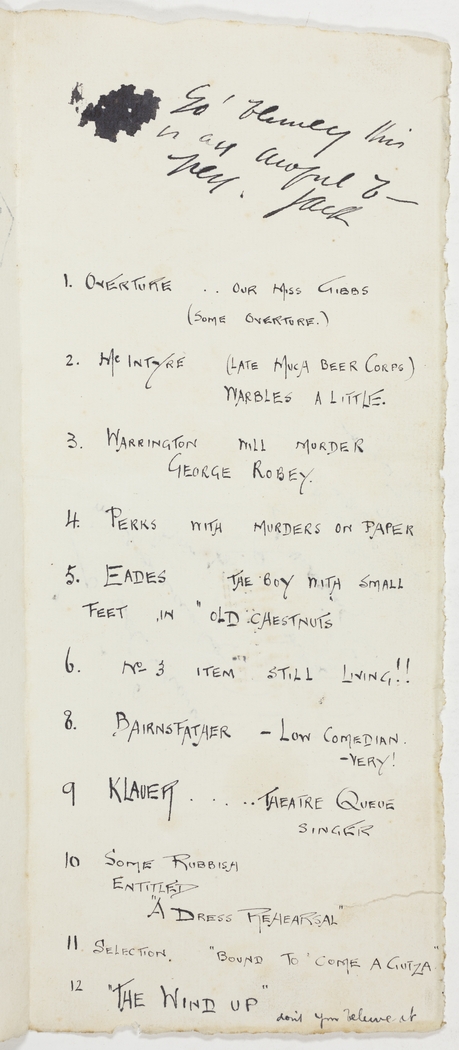 Go' blimey this
is an awful b—
pen. Jack
1. OVERTURE .. OUR MISS GIBBS
(SOME OVERTURE.)
2. Mc INTYRE (LATE MUCH BEER CORPS)
WARBLES A LITTLE.
3. WARRINGTON WILL MURDER
GEORGE ROBEY.
4. PERKS WITH MURDERS ON PAPER
5. EADES THE BOY WITH SMALL
FEET IN "OLD CHESTNUTS
6. No 3 ITEM STILL LIVING!!
8. BAIRNSFATHER - LOW COMEDIAN.
-VERY!
9 KLAUER ..... THEATRE QUEUE
SINGER
10 SOME RUBBISH
ENTITLED
"A DRESS REHEARSAL"
11 SELECTION. "BOUND TO COME A GUTZA"
12 "THE WIND UP" don't you believe it